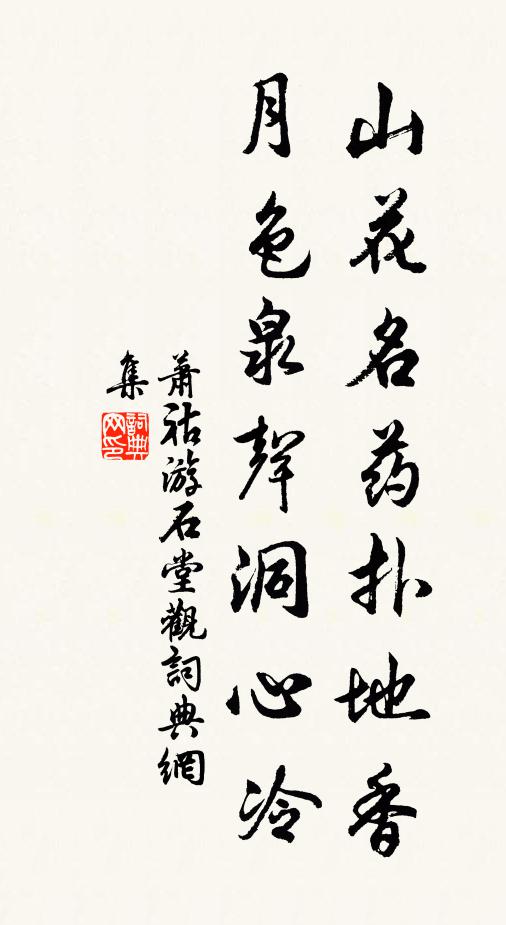 山花名药扑地香
月色泉聲洞心冷
萧祜游石堂觀詞典網
集
詞典
网印